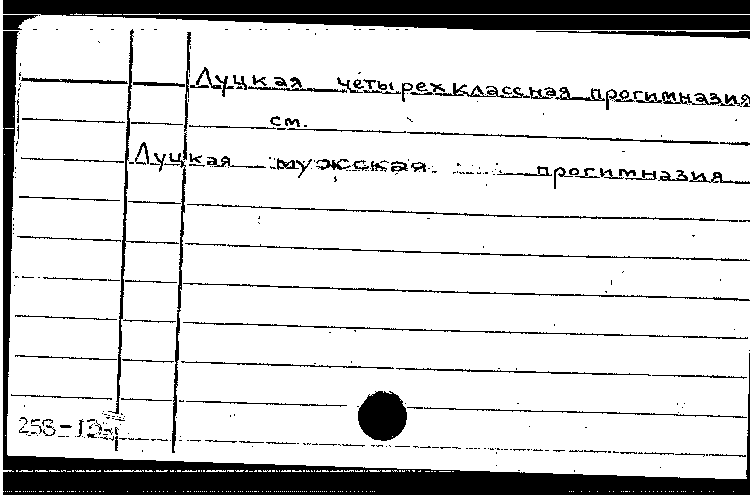 Луцкая четырехклассная прогимназия
см.
Луцкая мужская прогимназия
258-13